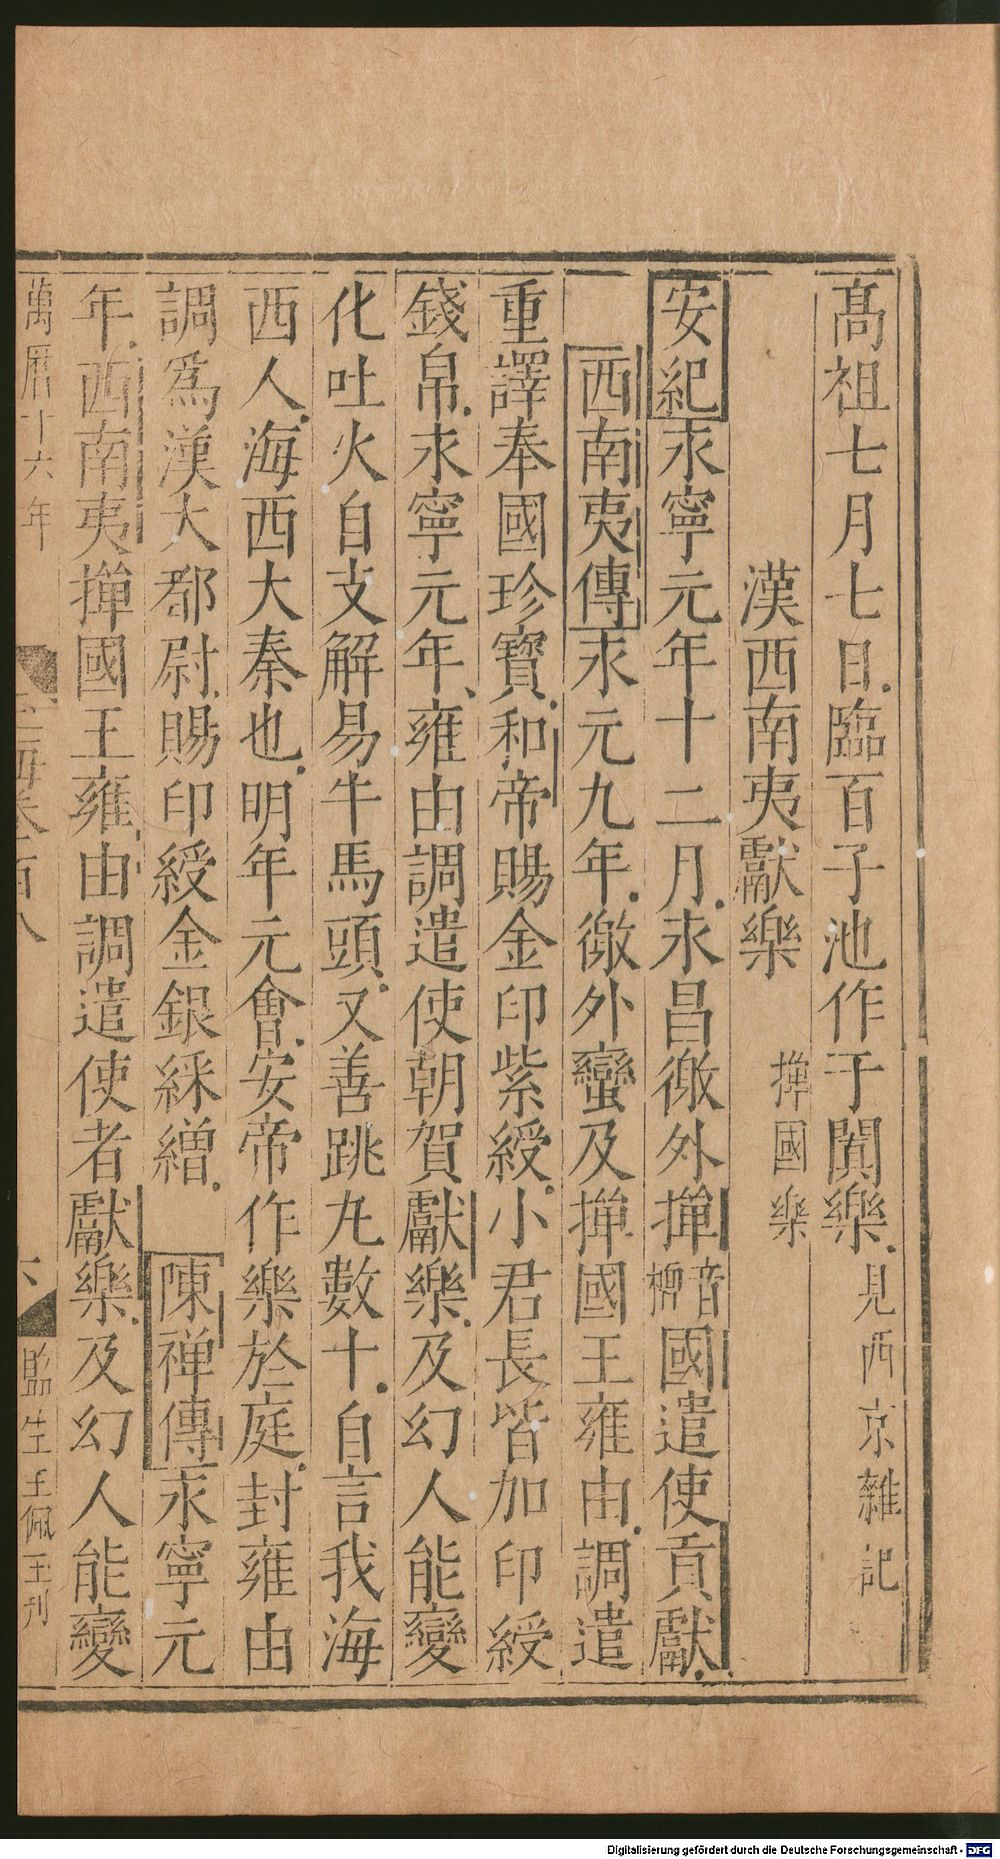 髙祖七月七日臨百子池作于闐樂見西京雜記
漢西南夷獻樂 撣國樂
安紀永寧元年十二月永昌徼外撣音檀國遣使貢獻
西南夷傳永元九年徼外蠻及撣國王雍由調遣
重譯奉國珍寶和帝賜金印紫綬小君長皆加印綬
錢帛永寧元年雍由調遣使朝賀獻樂及幻人能變
化吐火自支解易牛馬頭又善跳丸數十自言我海
西人海西大秦也明年元會安帝作樂於庭封雍由
調爲漢大都尉賜印綬金銀綵繒 陳禅傳永寧元
年西南夷撣國王雍由調遣使者獻樂及幻人能變
萬曆十六年 玉海卷一百八 六 監生王佩玉刊
Digitalisierung gefördert durch die Deutsche Forschungsgemeinschaft - DFG